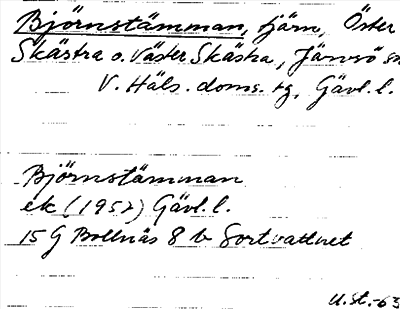 Björnstämman, tjärn, Öster
Skästra o. Väster Skästra, Järvsö sn
V. Häls. doms. tg, Gävl. l.
Björnstämman
ek (1957) Gävl. l.
15 G Bollnäs 8 b Sortvattnet
U.st.-63